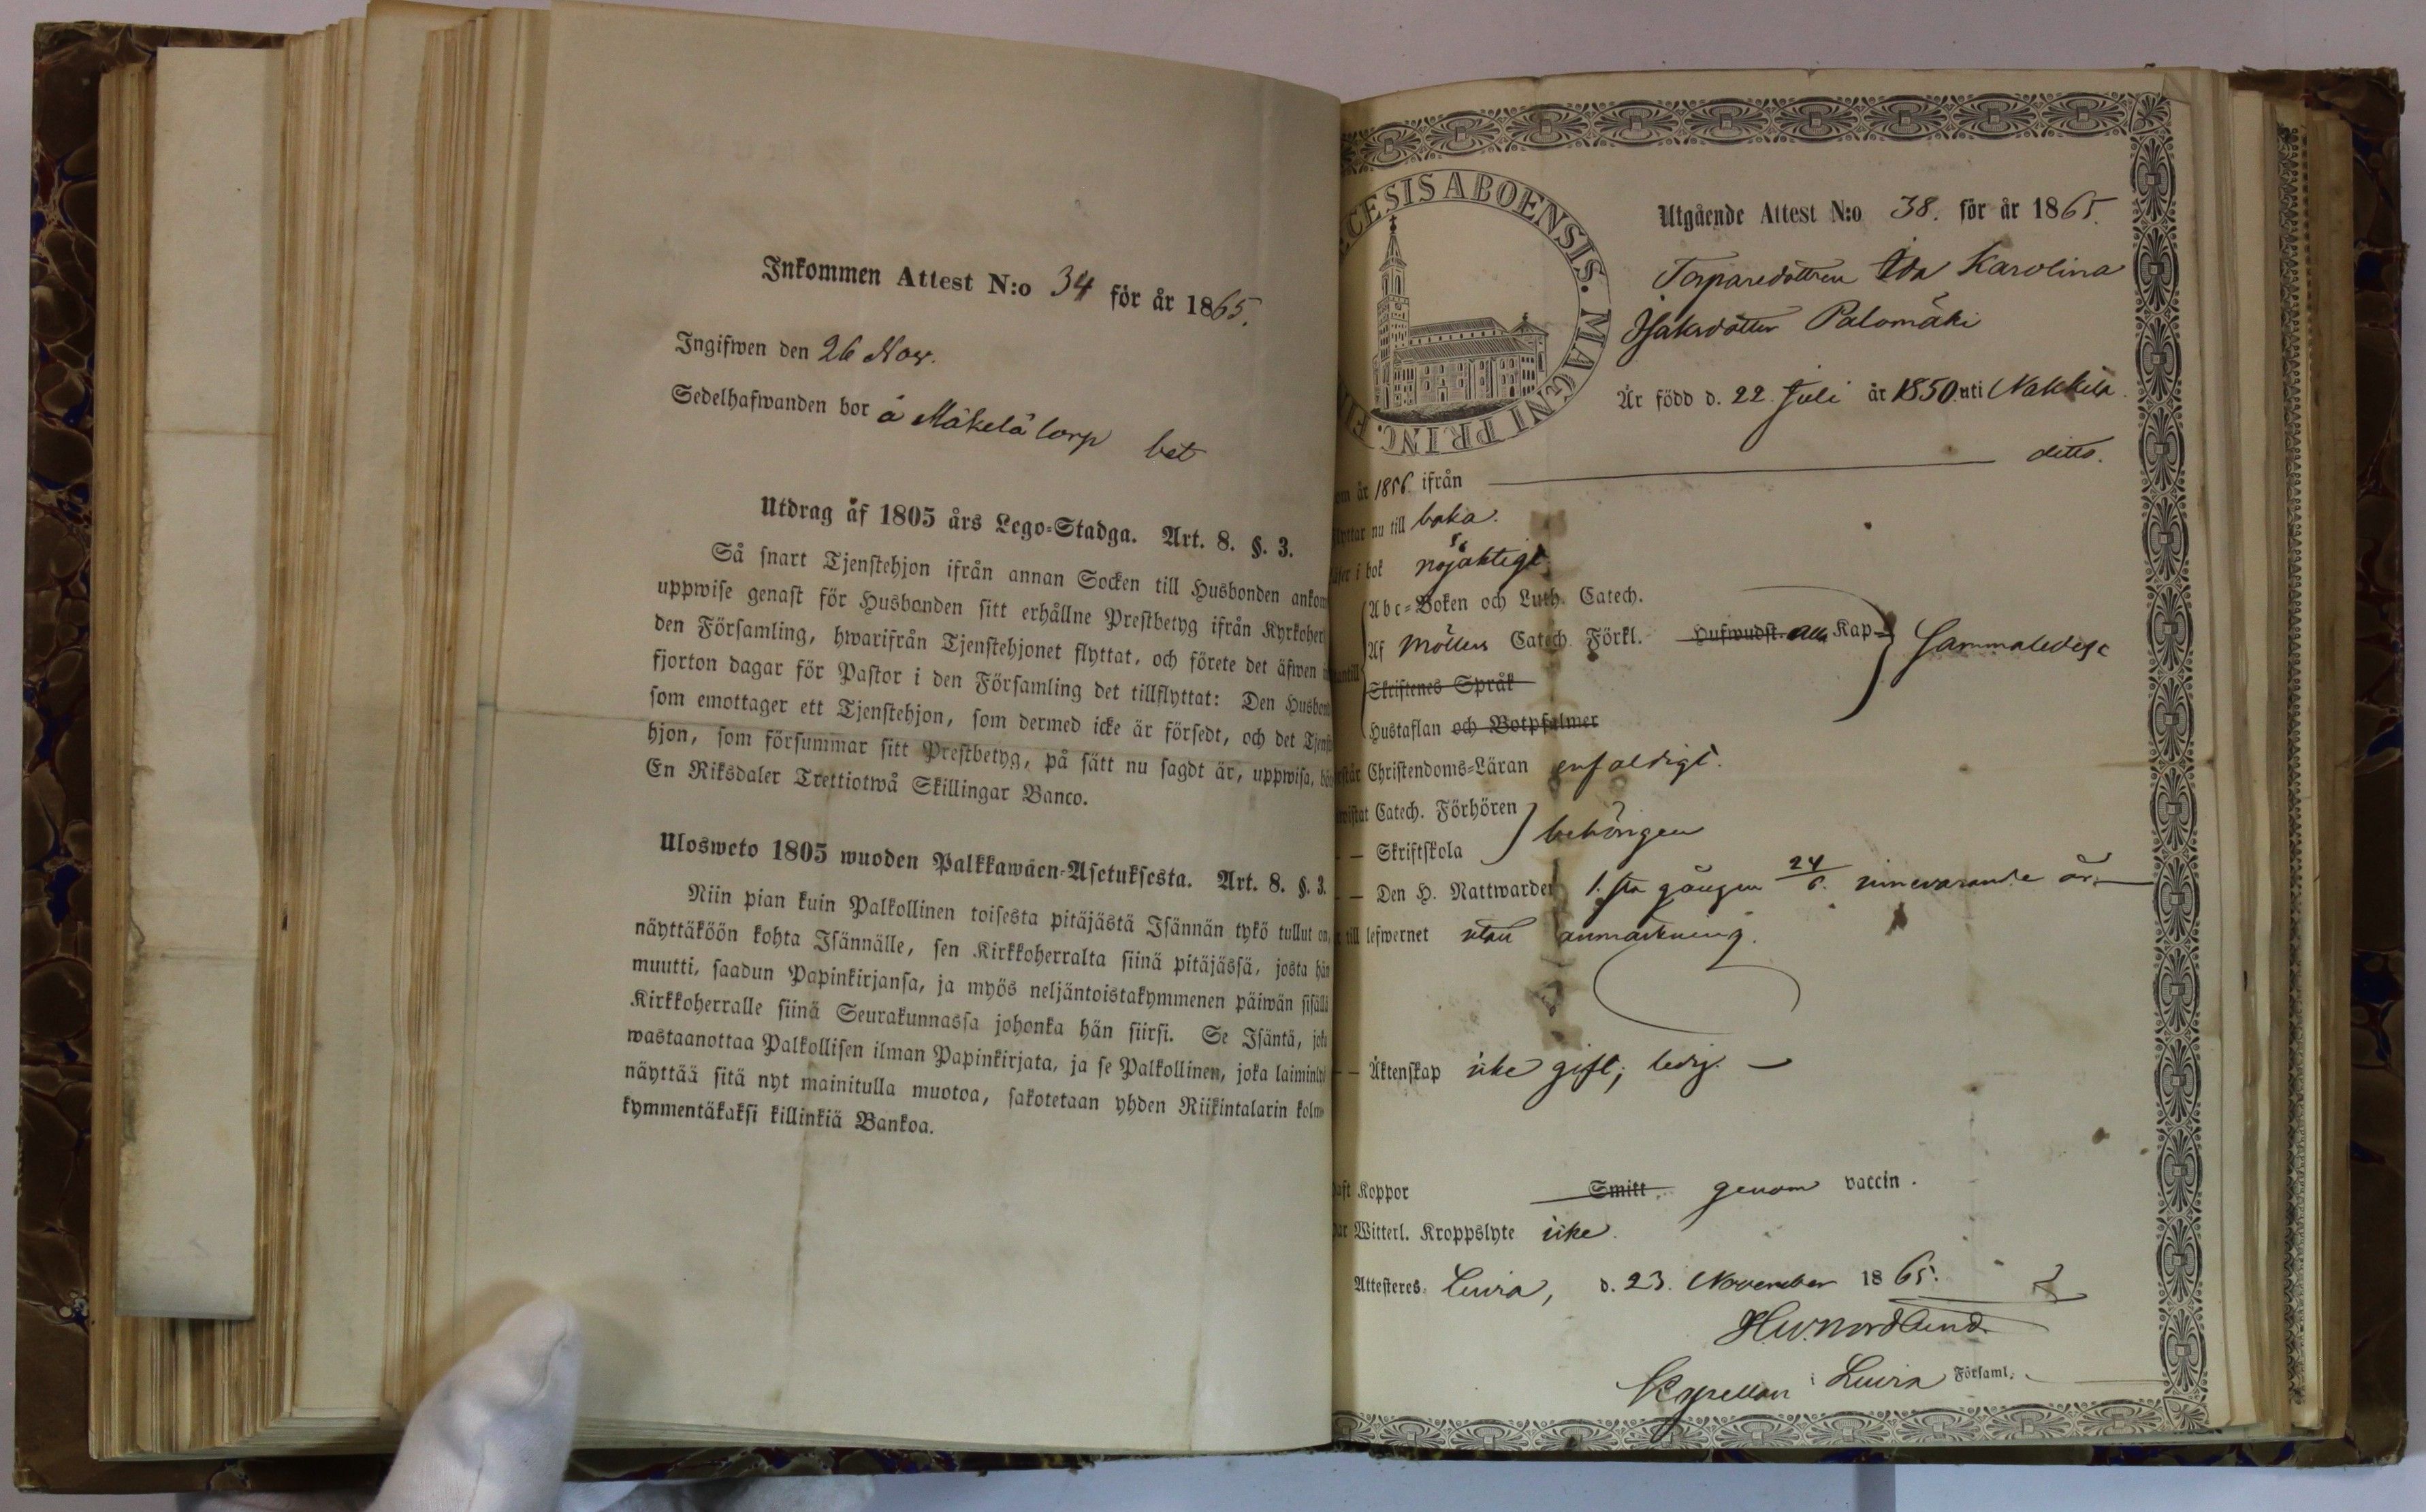 Inkommen Attest N:o 34 för år 1865.
Ingifwen den 26 Nov.
Sedelhafwanden bor å Mäkelä torp bet
Utdrag af 1805 års Lego-Stadga. Art. 8. §. 3.
Så snart Tjenstehjon ifrån annan Socken till Husbonden ankom
uppwise genast för Husbonden sitt erhållne Prestbetyg ifrån Kyrkoher
den Församling, hwarifrån Tjenstehjonet flyttat, och förete det äfwen
fjorton dagar för Pastor i den Församling det tillflyttat: Den Husbon
som emottager ett Tjenstehjon, som dermed icke är försedt, och det Tjenst
hjon, som försummar sitt Prestbetyg, på sätt nu sagdt är, uppwisa, bö
En Riksdaler Trettiotwå Skillingar Banco.
Ulosweto 1805 wuoden Palkkawäen-Asetuksesta. Art. 8. §. 3.
Niin pian kuin Palkollinen toisesta pitäjästä Isännän tykö tullut on,
näyttäköön kohta Isännälle, sen Kirkkoherralta siinä pitäjässä, josta hän
muutti, saadun Papinkirjansa, ja myös neljäntoistakymmenen päiwän sisällä
Kirkkoherralle siinä Seurakunnassa johonka hän siirsi. Se Isäntä, joka
wastaanottaa Palkollisen ilman Papinkirjata, ja se Palkollinen, joka laiminly
näyttää sitä nyt mainitulla muotoa, sakotetaan yhden Riikintalarin kolm
kymmentäkaksi killinkiä Bankoa.
CESIS ABOENSIS. MAGNI PRINC. FIN
Utgående Attest N:o 38. för år 1865.
Torparedottren Ida Karolina
Isaksdotter Palomäki
Är född d. 22 Juli år 1850 uti Nakkila.
om år 1856 ifrån ditto.
flyttar nu till baka.
läser i bok nöjaktigt
Abc-Boken och Luth. Catech.
Af Möllers Catech. Förkl. Hufwudst. alla Kap. Sammaledes
Skriftenes Språk
Hustaflan och Botpsalmer
Christendoms-Läran enfaldigt.
wistat Catech. Förhören
behörigen
— Skriftskola
— Den H. Nattwarden 1.sta gången 24/6. innevarande år. —
till lefwernet utan anmärkning.
— Äktenskap icke gift; ledig. —
Koppor Smitt. genom vaccin.
Witterl. Kroppslyte icke.
Attesteres. Luvia, d. 23. November 1865.
H.W. Nordlund
Kapellan i Luvia Församl.